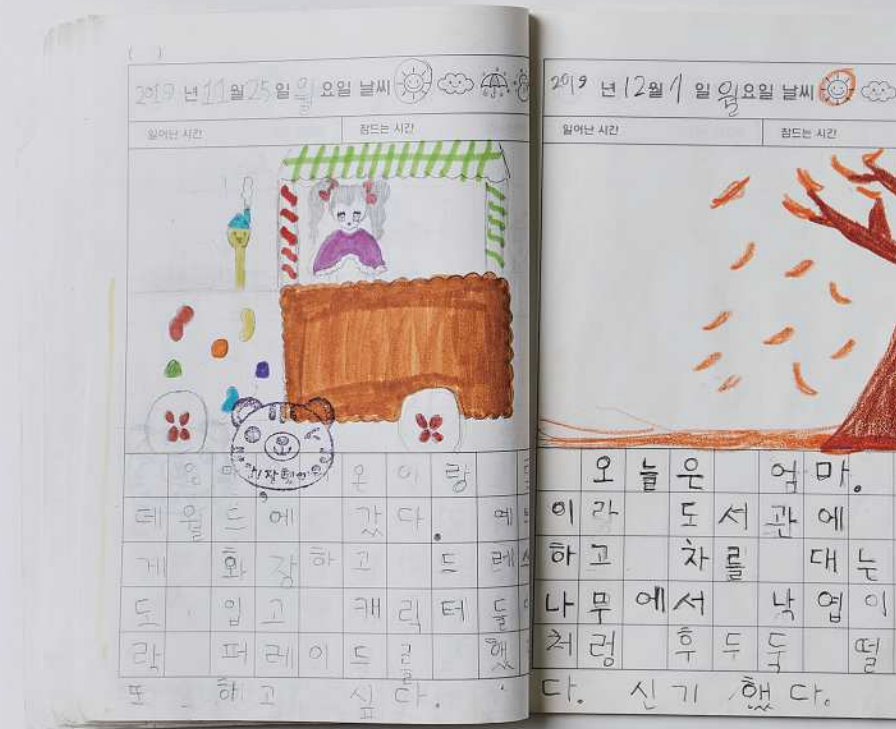 ( )
2019 년 11 월 25 일 월 요일 날씨
일어난 시간 잠드는 시간
온 이랑
데월드에 갔다. 예
게 화장하고 드레스
도 입고 캐릭터들
락 퍼레이드를 했
또 하고 싶다.
2019 년 12 월 1 일 월 요일 날씨
일어난 시간 잠드는 시간
오늘은 엄마.
이라 도서관에
하고 차를 대는
나무에서 낙엽이
처렁 후두둑 떨
다. 신기했다.